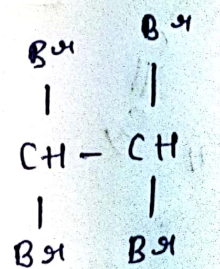 Br Br
| |
CH – CH
| |
Br Br